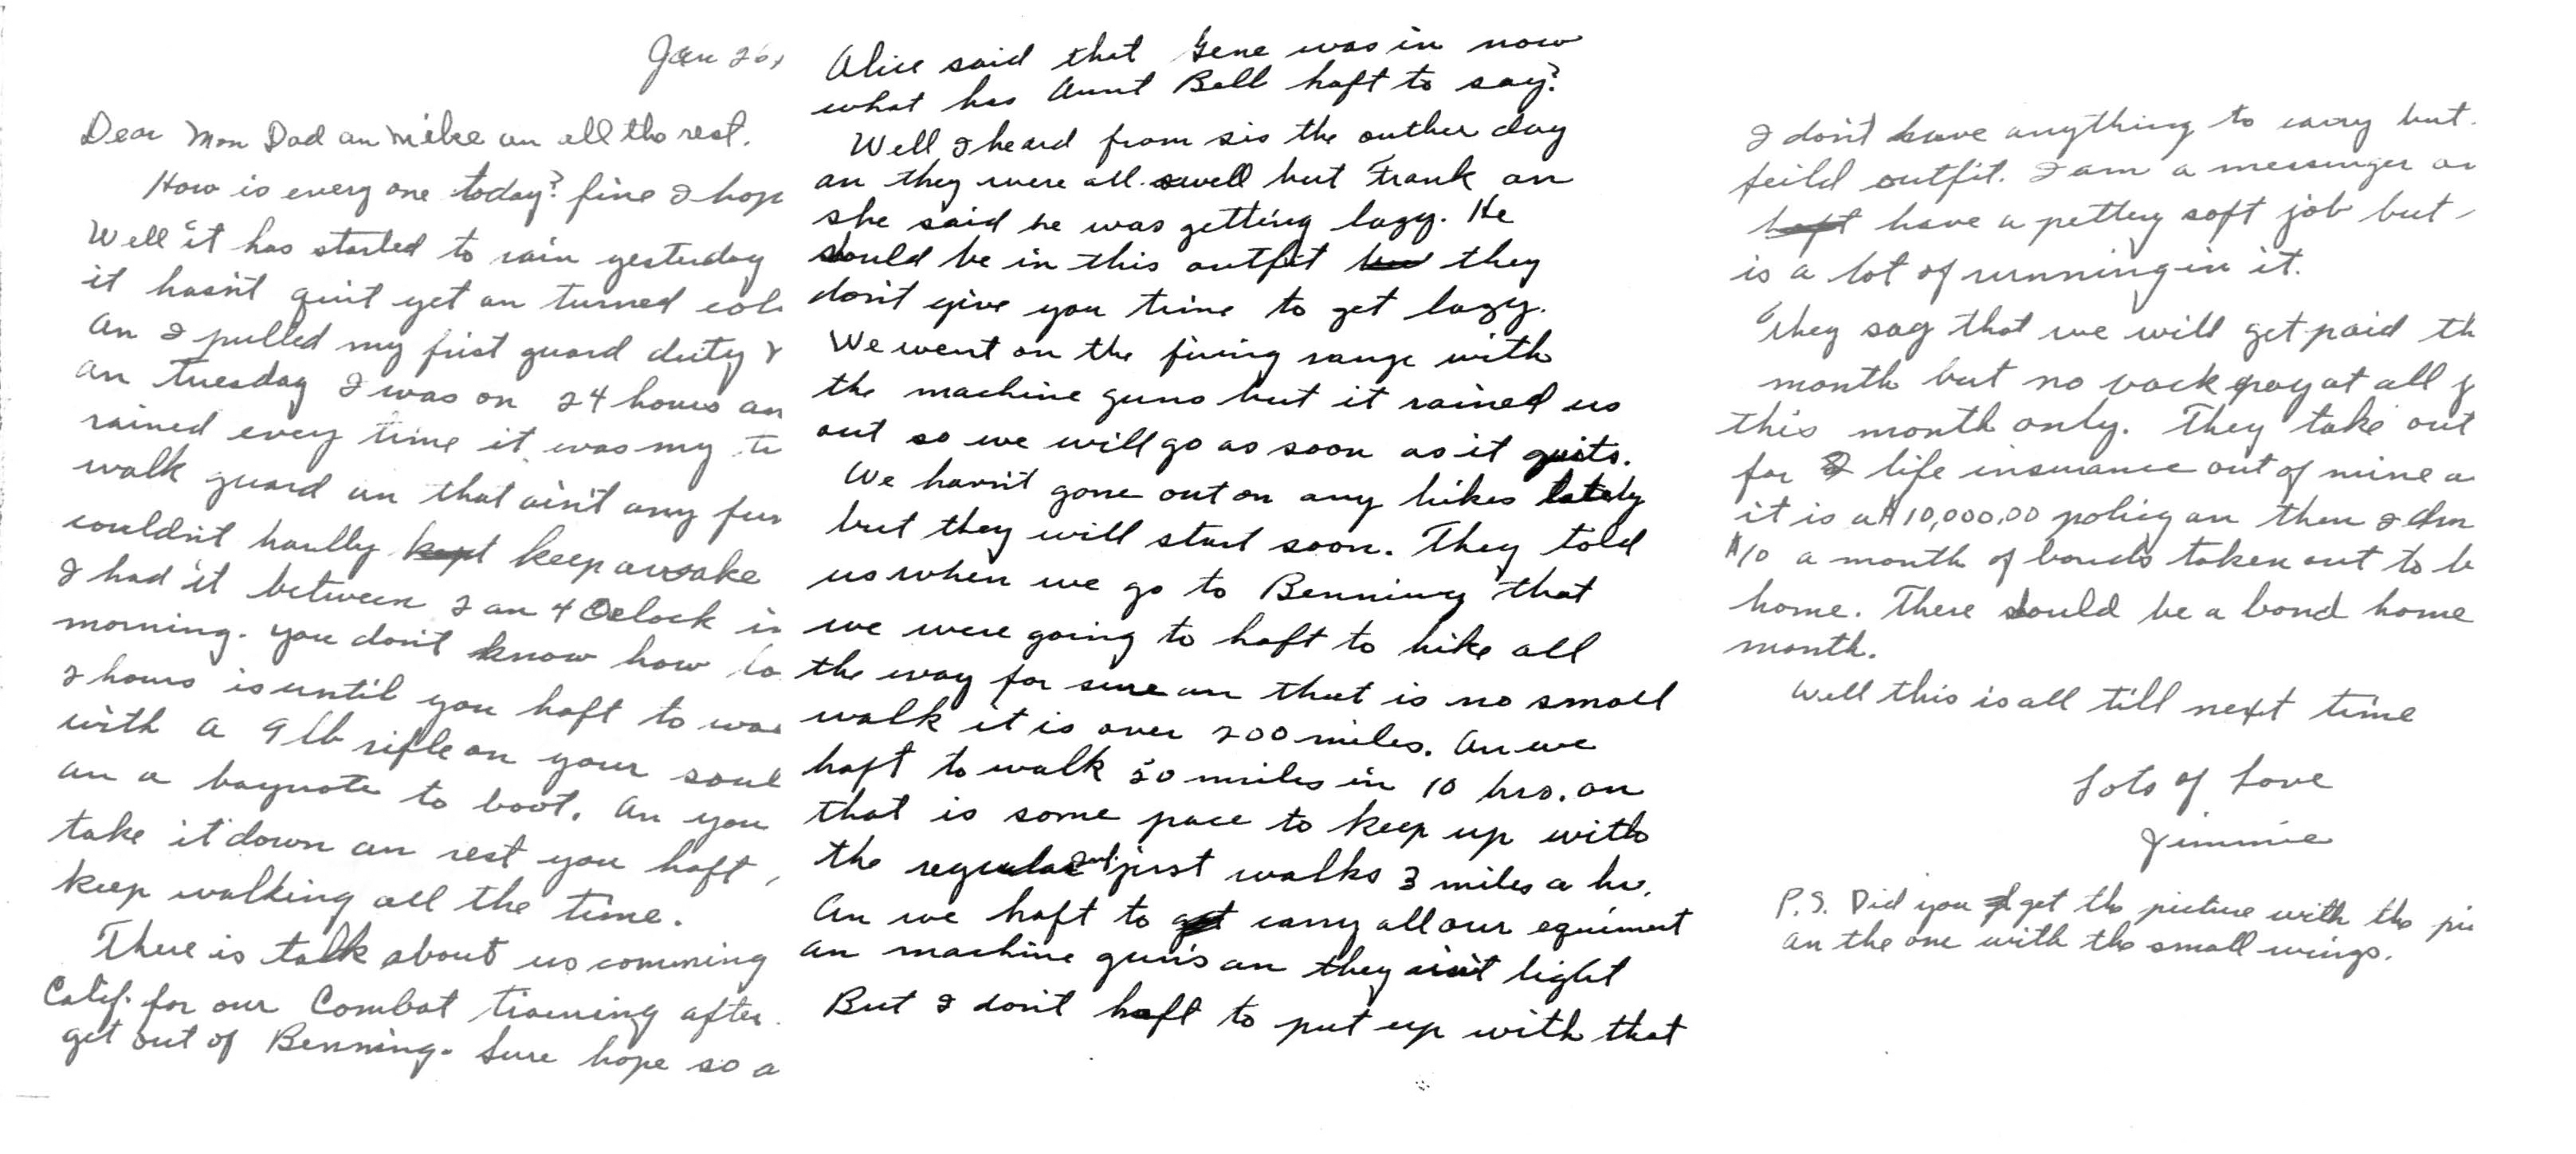 Jan 26,
Dear Mon Dad an Mike an all the rest.
How is every one today? fine I hope
Well it has started to rain yesterday
it hasn't quit yet an turned col
an I pulled my first guard duty
an Tuesday I was on 24 hours an
rained every time it was my t
walk guard an that ain't any fun
couldn't haully kept keep awake
I had it between 2 an 4 Oclock in
morning. you don't know how lo
2 hours is until you haft to wa
with a 9 lb rifle on your soul
an a baynote to boot. An you
take it down an rest you haft
keep walking all the time.
There is talk about us comming
Calif. for our Combat traening after
get out of Benning. Sure hope so a
Alice said that Gene was in now
what has Aunt Bell haft to say?
Well I heard from sis the outher day
an they were all swell but Frank an
she said he was getting lazy. He
should be in this outfit they
don't give you time to get lazy.
We went on the firing range with
the machine guns but it rained us
out so we will go as soon as it quits.
We havn't gone out on any hikes lately
but they will start soon. They told
us when we go to Benning that
we were going to haft to hike all
the way for sure an that is no small
walk it is over 200 miles. An we
haft to walk 50 miles in 10 hrs. an
that is some pace to keep up with
the regular Inf. just walks 3 miles a hr.
An we haft to get carry all our equiment
an machine guns an they ain't light
But I don't haft to put up with that
I don't have anything to carry but
feild outfit. I am a messenger an
haft have a pettey soft job but
is a lot of running in it.
They say that we will get paid th
month but no back pay at all f
this month only. They take out
for life insurance out of mine a
it is a $10,000.00 policy an then I am
$10 a month of bonds taken out to b
home. There should be a bond home
month.
Well this is all till next time
Lots of Love
Jimmie
P.S. Did you get the picture with the pi
an the one with the small wings.